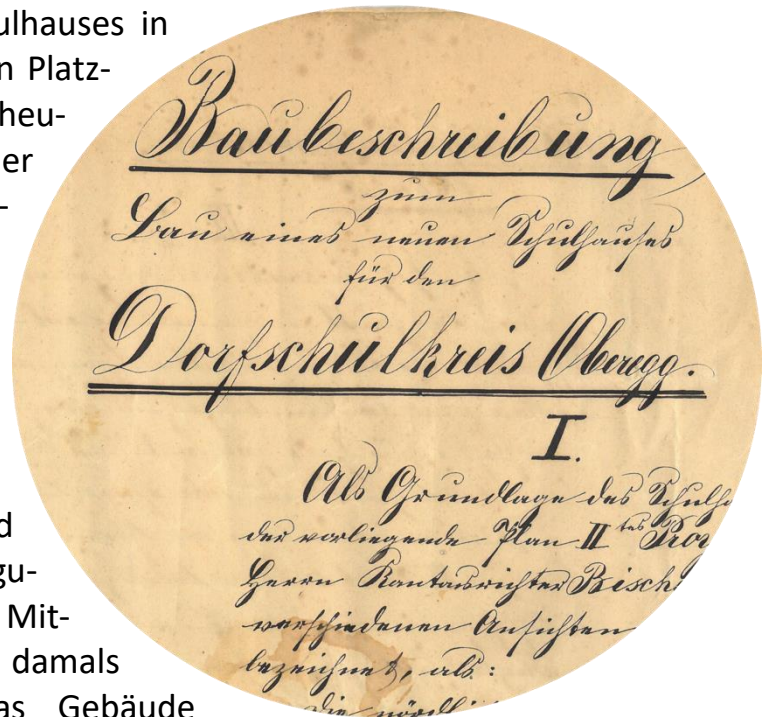 ulhauses in
n Platz-
heu-
er
-
d
gu-
Mit-
damals
as Gebäude
Baubeschreibung
zum
Bau eines neuen Schulhauses
für den
Dorfschulkreis Oberegg.
I.
Als Grundlage des Schulh
der vorliegende Plan II tes Proj
Herrn Kantonsrichter Bisch
verschiedenen Ansichten
bezeichnet, als:
die nördli